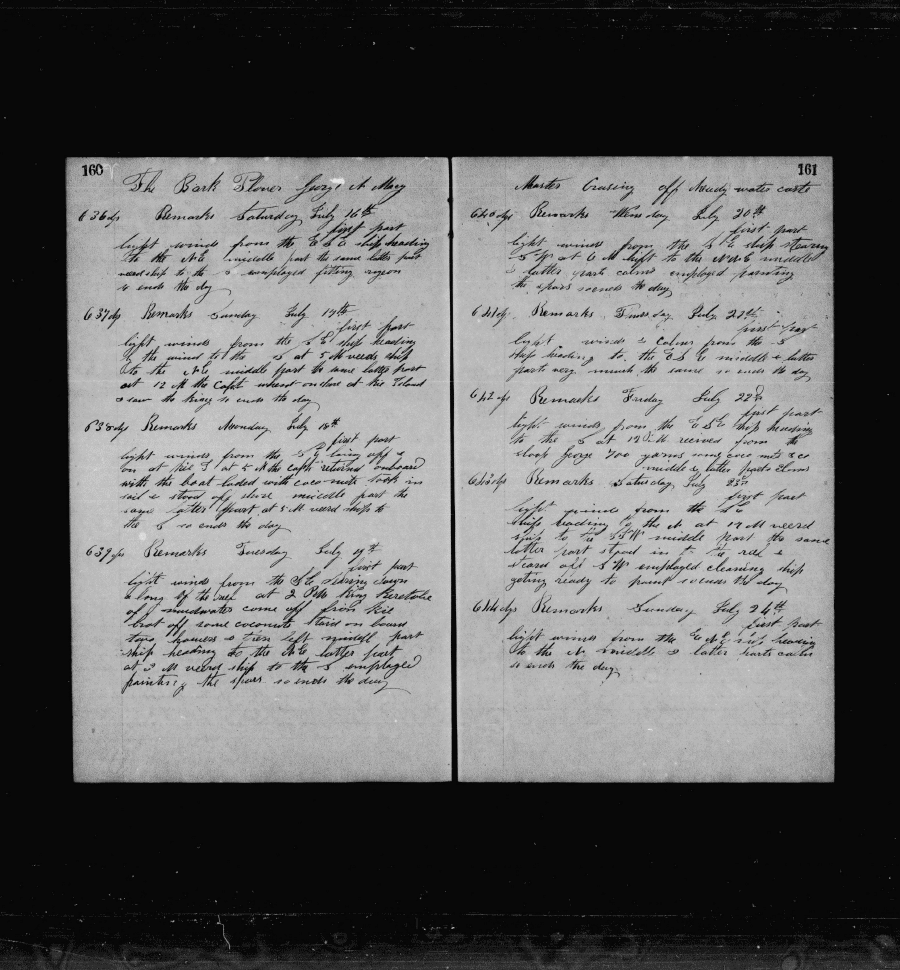 160
The Bark Plover George A Macy
636 dys Remarks Saturday July 16th
first part
light winds from the E S E ship heading
to the N E middle part the same latter part
veerd ship to the S employed fiting
so ends the day
637 dys Remarks Sunday July 17th
first part
light winds from the S E ship heading
by the wind to the S at 5 M veerd ship
to the N E middle part the same latter part
at 12 M the Capt went on shore at the Island
& saw the King so ends the day
638 dys Remarks Monday July 18th
first part
light winds from the S E laing off &
on at at 5 M the capt returned onboard
with the boat loded with coco nuts took in
sail & stood off shore middle part the
same latter part at 5 M veerd ship to
the S so ends the day
639 dys Remarks Tuesday July 19th
first part
light winds from the S E down
along the reef at 2 PM King
of come off from
brot off some coconuts staid on board
two howers & then left middl part
ship heading to the N E latter part
at 3 M veerd ship to the S employed
painting the spars so ends the day
161
Master Crusing off water casts
640 dys Remarks Wensday July 20th
first part
light winds from the S E ship stearing
S W at 6 M shift to the middle
& latter part calms employed painting
the spars so ends the day
641 dys Remarks July 21st
first part
light winds & calms from the S
ship heading to the E S E middle & latter
parts very much the same so ends the day
642 dys Remarks Friday July 22d
first part
light winds from the E S E ship heading
to the S at 12 M received from the
sloop George 700 yams some coco nuts &co
middle & latter parts
643 dys Remarks Saturday July 23d
first part
light winds from the S E
ship heading to the N at 12 M veerd
ship to the S S W middle part the same
latter part stood in to the reef &
steard off S W employed cleaning ship
geting ready to paint so ends the day
644 dys Remarks Sunday July 24th
first part
light winds from the E N E ship heading
to the N middle & latter parts calm
so ends the day